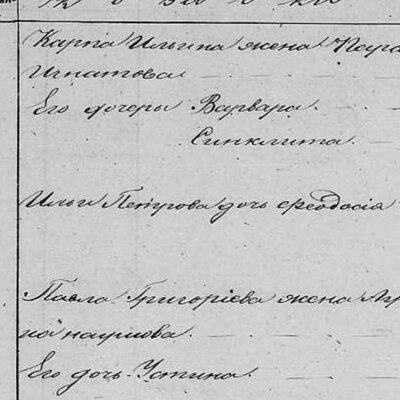 Карпа Ильина жена Пара
Игнатова
Его дочери Варвара
Синклита.
Ильи Петрова дочь Феодосія
Павла Григоріева жена
на наумова.
Его дочь Устина.